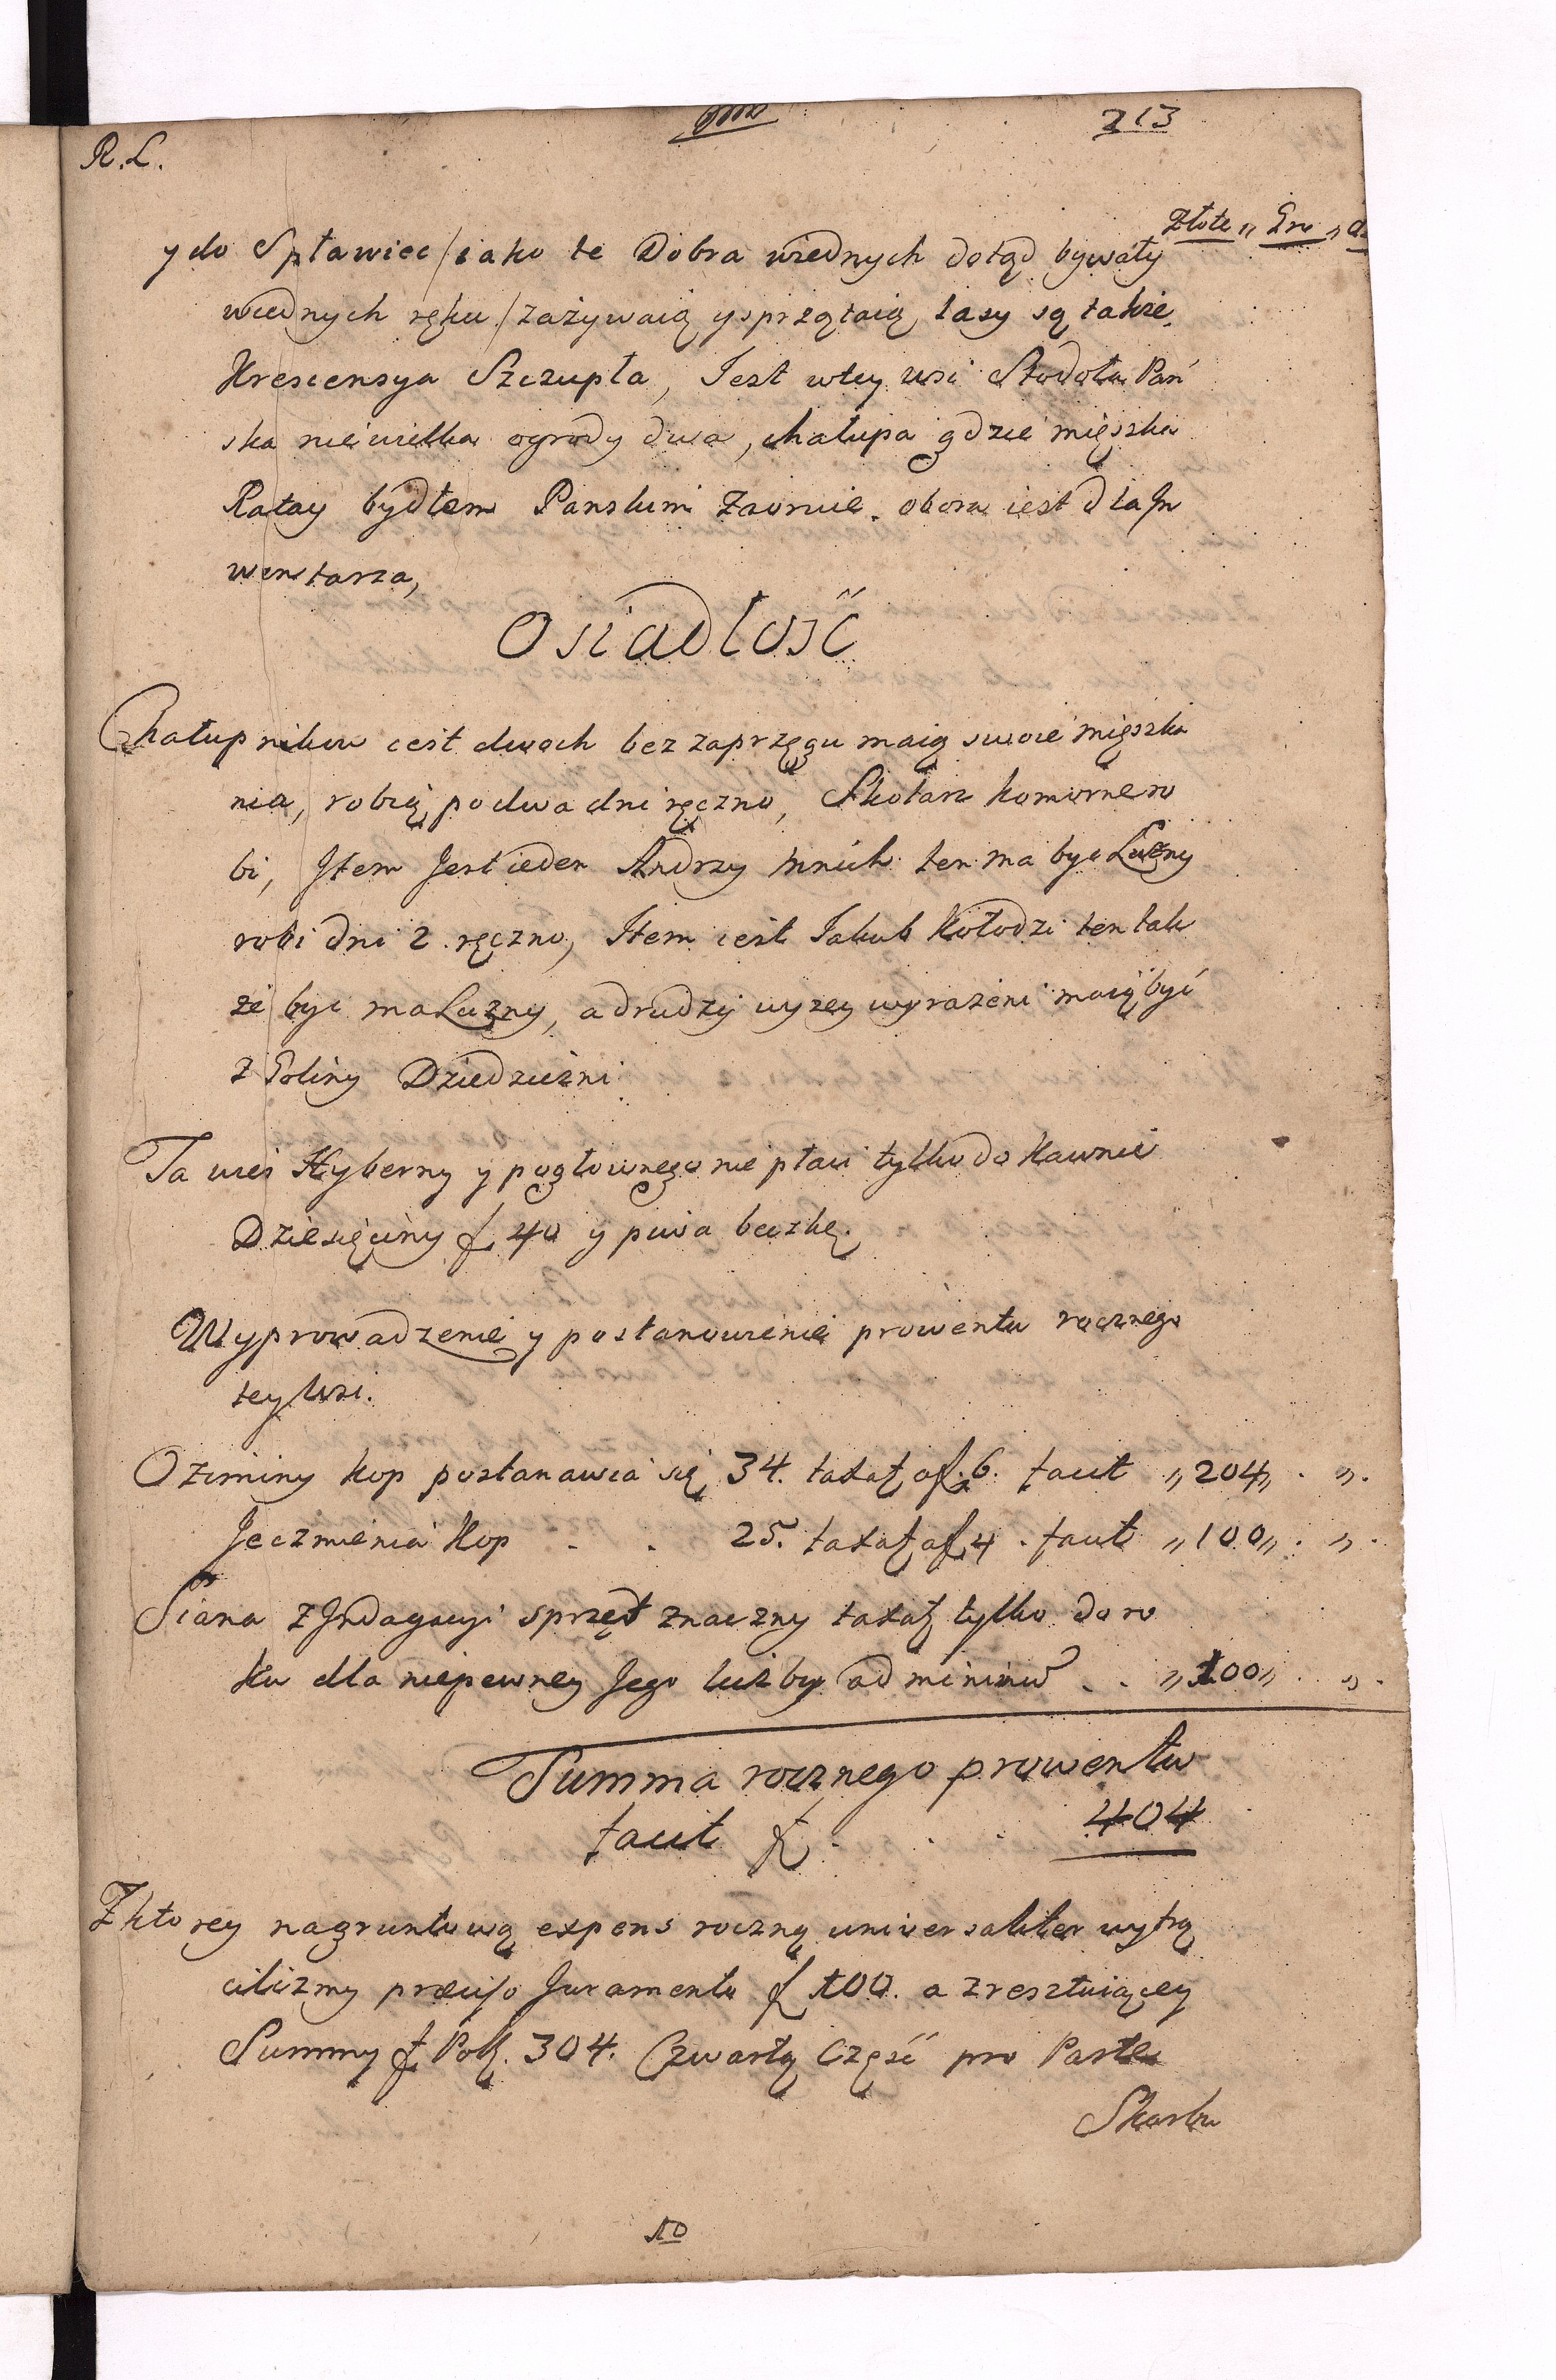 213
R. L.
Złote „ Gro „ d.
y do Spławiec / iako te Dobra wiednych dotąd bywały
wiednych ręku / zażywaią y sprzątaią, lasy są także
Krescensya Szczupła, Jest wtey wsi Stodoła Pań
ska niewielka ogrody dwa, chałupa gdzie mięszka
Ratay bydłem Panskim zaornie. obora iest dla In
wentarza,
Osiadłość
Chałupnikow iest dwoch bez zaprzęgu maią swoie mięszka
nia, robią po dwa dni ręczno, Skotarz komorne ro
bi, Item Jest ieden Andrzy Mnich ten ma byc Luzny
robi dni 2. ręczno, Item iest Jakub Kołodzi ten tak
że byc ma Luzny, a drudzy wyzey wyrażeni maią być
z Goliny Dziedziczni
Ta wieś Hyberny y pogłownego nie płaci tylko do Kawnic
Dziesięciny f 40 y piwa beczkę.
Wyprowadzenie y postanowienie prowentu rocznego
tey Wsi.
Oziminy kop postanawia się 34. taxat a f. 6. facit „ 204 „ . „ .
Jeczmienia Kop . . 25. taxat a f 4 . facit „ 100 „ . „ .
Siana z Indagacyi sprzęt znaczny taxat tylko do ro
ku dla niepewney Jego liczby ad minimū . . „ 100 „ . „ .
Summa rocznego prowentu
facit f . . . 404
Zktorey nagruntową expens roczną universaliter wytrą
cilizmy præviso Juramento f 100. a zresztuiącey
Summy f Pol. 304. Czwartą Część pro Parte
Skarbu